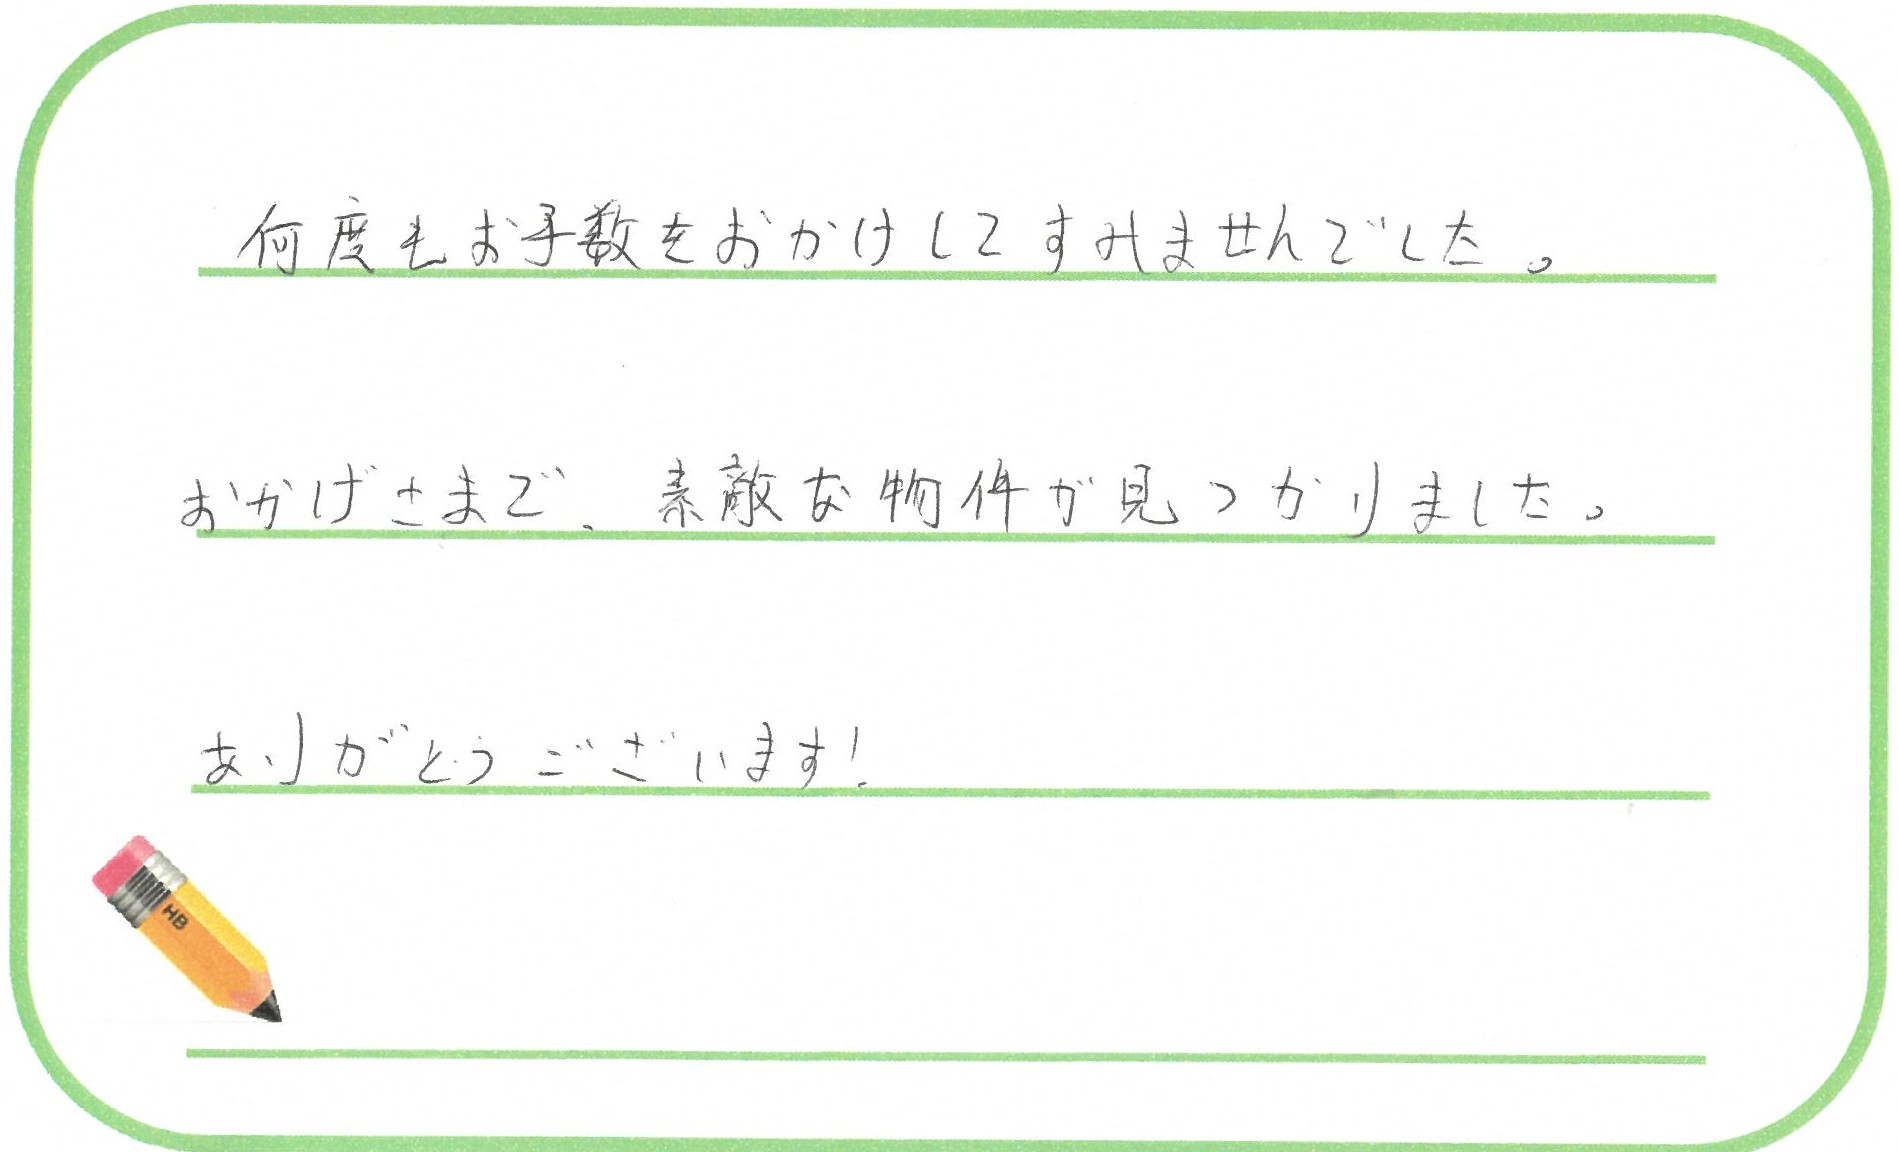 何度もお手数をおかけしてすみませんでした。
おかげさまで、素敵な物件が見つかりました。
ありがとうございます!
HB